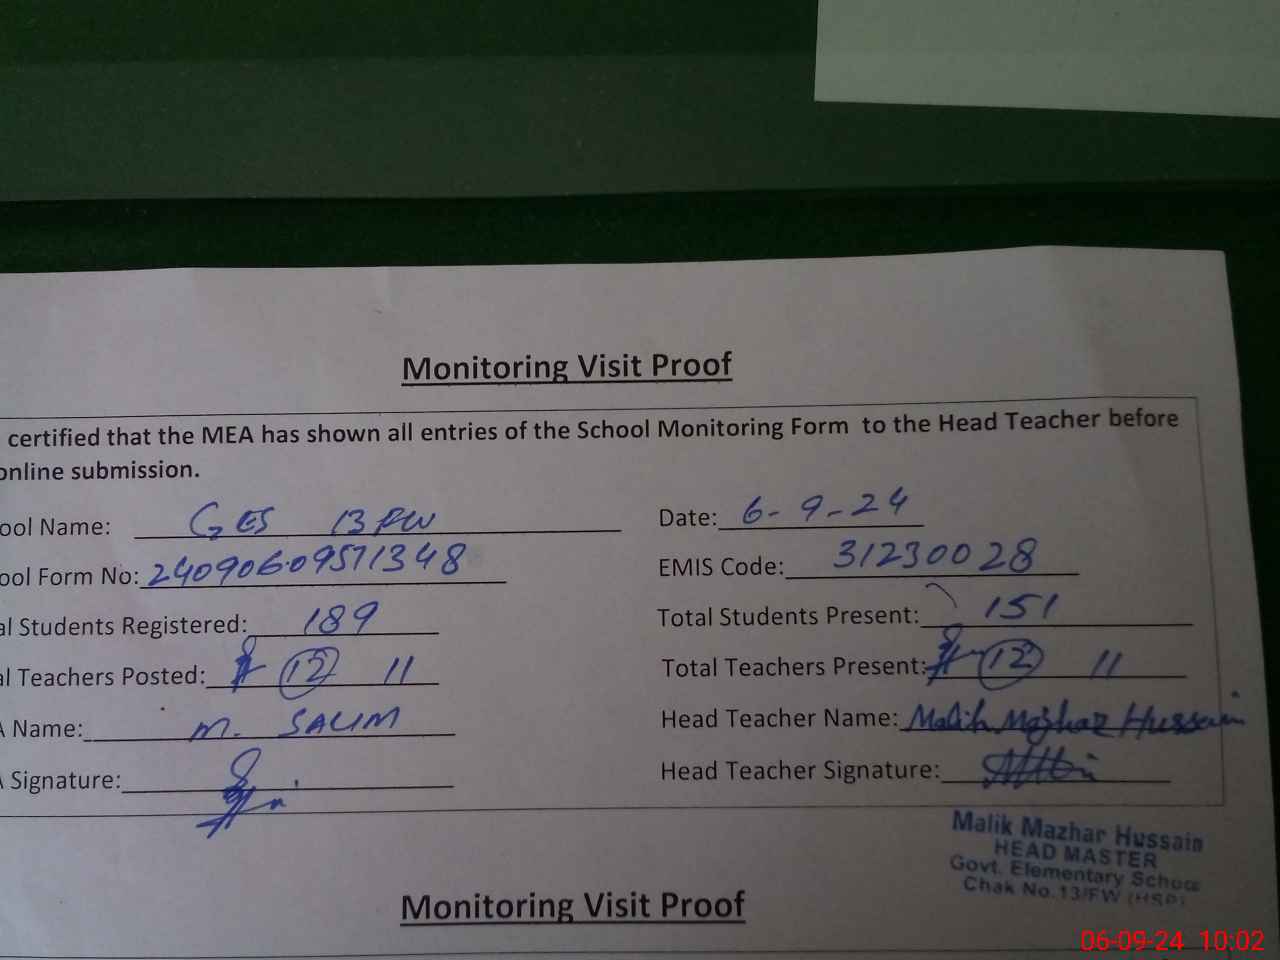 Monitoring Visit Proof
certified that the MEA has shown all entries of the School Monitoring Form to the Head Teacher before
online submission.
ool Name: GES 13 FW Date: 6-9-24
ool Form No: 24090609571348 EMIS Code: 31230028
al Students Registered: 189 Total Students Present: 151
al Teachers Posted: 12 11 Total Teachers Present: 12 11
A Name: M. SALIM Head Teacher Name: Malik Mazhar Hussain
A Signature: Head Teacher Signature:
Malik Mazhar Hussain
HEAD MASTER
Govt. Elementary School
Chak No.13/FW (HSP)
Monitoring Visit Proof
06-09-24 10:02